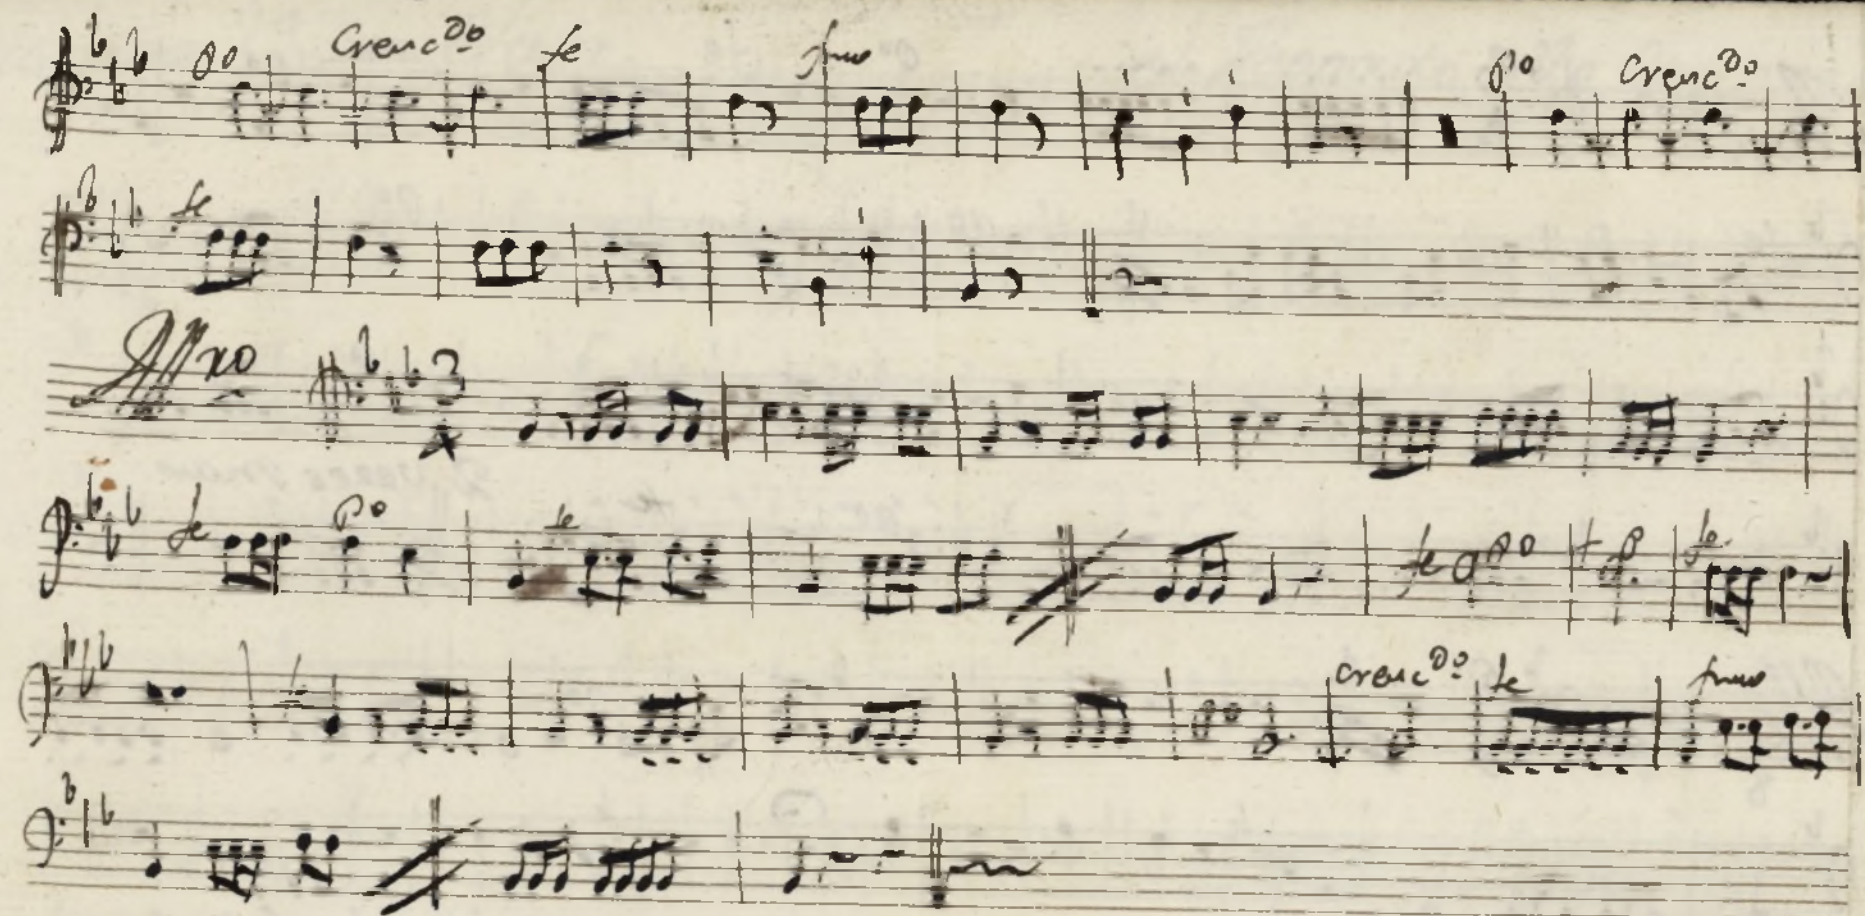 po Crenc.do fe fmo po Crenc.do
fe
Allxo 3 4
fe po fe fe po fe
Crenc.do fe fmo